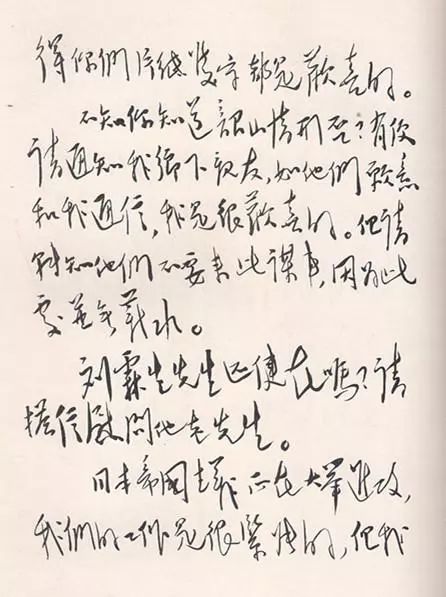 得你們片紙隻字都是歡喜的。
不知你知道韶山情形否？有便
請通知我鄉下親友，如他們願意
和我通信，我是很歡喜的。但請
轉知他們不要來此謀事，因為此
處並無薪水。
刘霖生先生还健在嗎？請
搭信慰問他老先生。
日本帝國主義正在大舉進攻，
我們的工作是很緊張的，但我